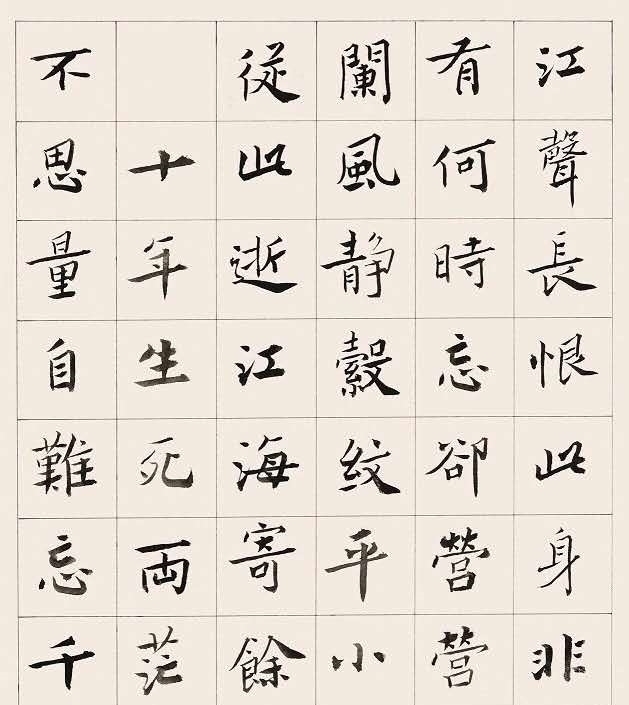 江聲長恨此身非
有何時忘卻營營
闌風静縠紋平小
從此逝江海寄餘
十年生死両茫
不思量自難忘千